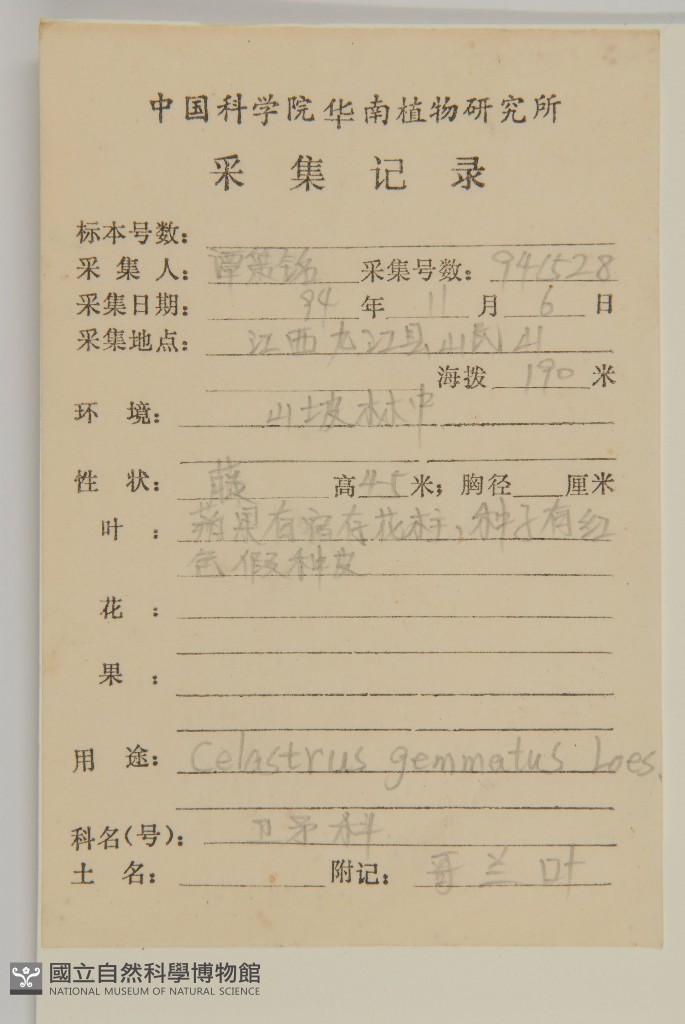 中国科学院华南植物研究所
采集记录
标本号数：
采集人：谭策铭 采集号数：941528
采集日期：94年11月6日
采集地点：江西九江县岷山
海拨 190 米
环境：山坡林中
性状：藤 高4-5米；胸径 厘米
叶：蒴果有宿存花柱，种子有红
色假种皮
花：
果：
用途：Celastrus gemmatus Loes.
科名(号)：卫矛科
土名： 附记：哥兰叶
國立自然科學博物館
NATIONAL MUSEUM OF NATURAL SCIENCE